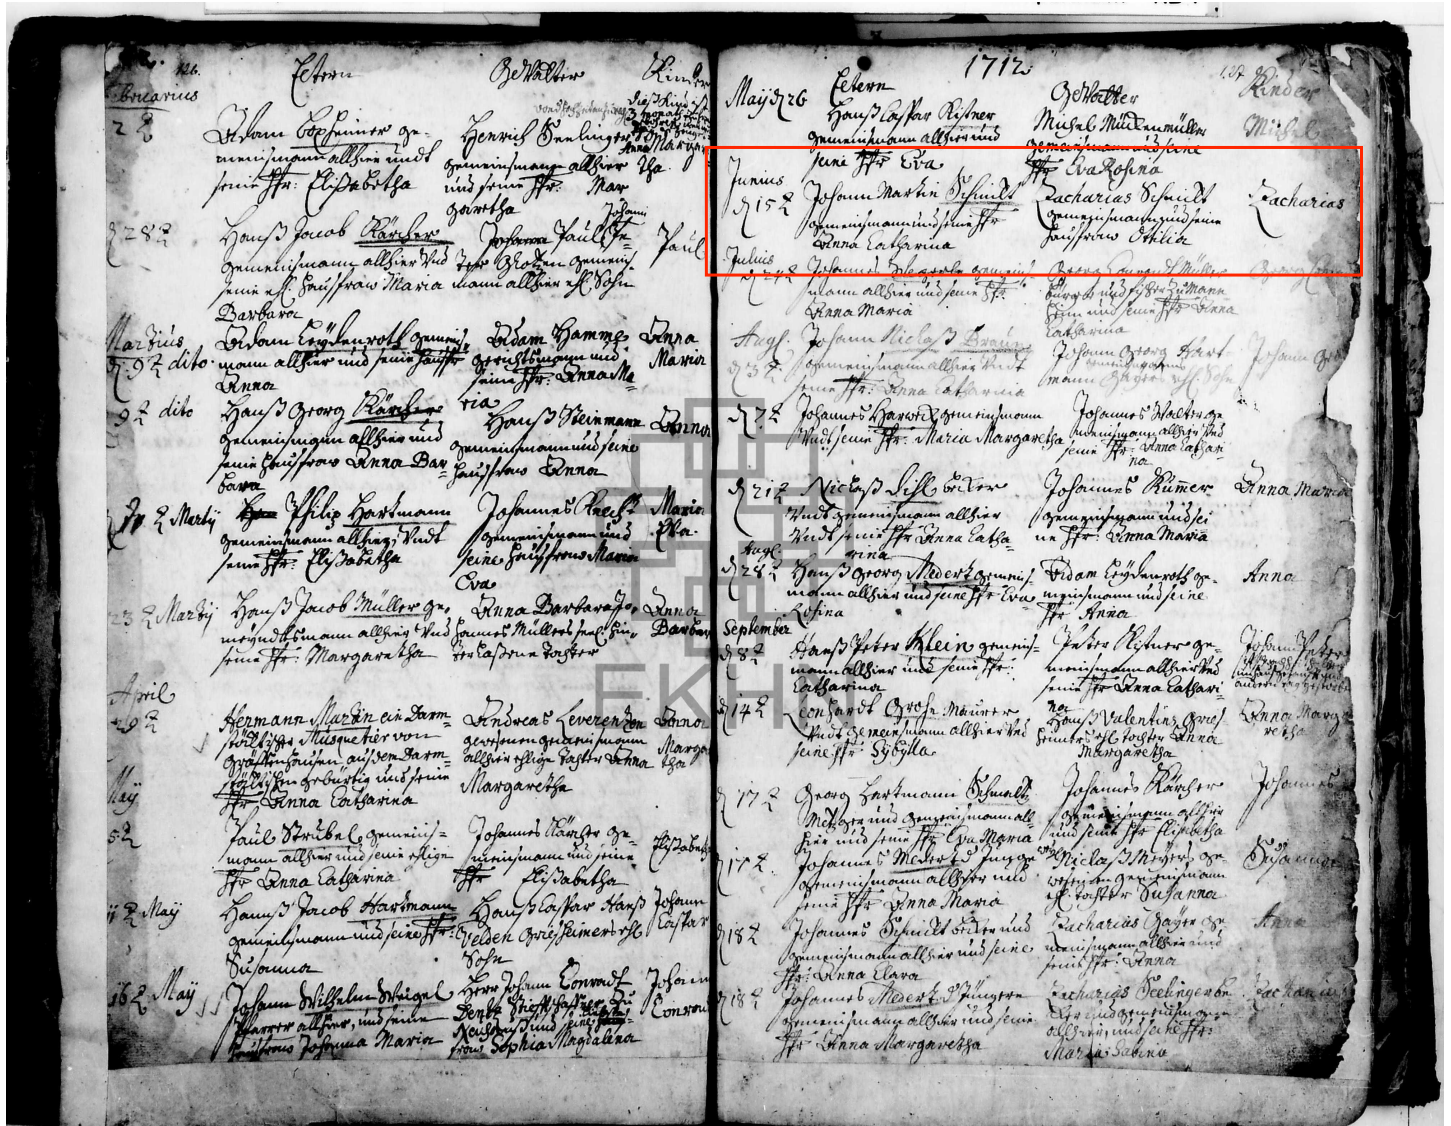 126.
Eltern
Gevatter
Kinder
bruarius
Adam Boxheimer ge-
meinsmann allhier undt
seine Hfr: Elisabetha
Henrich Seelinger
gemeinsmann allhier
und seine Hfr: Mar
garetha
Anna Margar
tha
d 28 t
Hanß Jacob Kärcher
gemeinsmann allhier Vnd
seine ehl. Haussfraw Maria
Barbara
Johann
Paul Pe-
ter gemeins-
mann allhier ehl. Sohn
Paul
Martius
d. 9 t dito
Adam Leydenroth gemeins
mann allhier und seine Haussfr
Anna
Adam Hamm
gerichtsmann und
seine Hfr: Anna Ma-
ria
Anna
Maria
9 t dito
Hanß Georg Kärcher
gemeinsmann allhier und
seine Haussfraw Anna Bar
bara
Hanß Steinmann
gemeinsmann und seine
Haussfraw Anna
Anna
Marty
Philip Hartmann
gemeinsmann allhier Vndt
seine Hfr: Elisabetha
Johannes Knecht
gemeinsmann und
seine Haussfraw Maria
Eva
Maria
Eva
23 t Marty
Hanß Jacob Müller ge-
meyndtsmann allhier Vnd
seine Hfr: Margaretha
Anna Barbara Jo-
hannes Müllers seel. hin-
terlassene Tochter
Anna
Barbar
April
29 t
Hermann Martin ein Darm-
städtischer Musquetier von
Gräffenhausen auß dem Darm-
städtischen gebürtig und seine
Hfr Anna Catharina
Andreas
gewesenen gemeinsmann
allhier ehlige Tochter Anna
Margaretha
Anna
Marga
tha
May
5 t
Paul Strubel gemeins-
mann allhier und seine ehlige
Hfr Anna Catharina
Johannes Kärcher ge-
meinsmann und seine
Hfr Elisabetha
Elisabeth
May
Hannß Jacob Hartmann
gemeinsmann und seine Hfr:
Susanna
Hanß Caspar Hanß
Velden Griesheimers ehl
Sohn
Johann
Caspar
16 t May
Johann Wilhelm Weigel
Pfarrer allhier, und seine
Haussfraw Johanna Maria
Herr Johann Conradt
Stifftschaffner zu
Neuhauß und seine
fraw Sophia Magdalena
Johann
Conrad
1712
127
May d 26
Eltern
Gevatter
Kinder
Hanß Caspar Kistner
gemeinsmann allhier und
seine Hfr Eva
Michel Mückenmüller
gemeinsmann und seine
Hfr Eva Rosina
Michel
Junius
d 15 t
Johann Martin Schmidt
gemeinsmann und seine Hfr
Anna Catharina
Zacharias Schmidt
gemeinsmann und seine
Haussfraw Ottilia
Zacharias
Julius
d 24 t
Johannes gemeins-
mann allhier und seine Hfr:
Anna Maria
Georg Müller
bürger und fischer zu Mann
heim und seine Hfr Anna
Catharina
Georg
Augs.
d 3 t
Johann Niclaß Braun
gemeinsmann allhier Vndt
seine Hfr: Anna Catharina
Johann Georg Hart-
mann ehl. Sohn
Johann Geo
d 7 t
Johannes Hartwick gemeinsmann
Vndt seine Hfr: Maria Margaretha
Johannes Walter ge
meinsmann allhier Vnd
seine Hfr: Anna Cathari
na
d 21 t
Niclaß Dihl becker
Vndt gemeinsmann allhier
Vndt seine Hfr Anna Catha-
rina
Johannes Kumer
gemeinsmann und sei
ne Hfr: Anna Maria
Anna Maria
Augs.
d 28 t
Hanß Georg Medert gemeins-
mann allhier und seine Hfr Eva
Rosina
Adam Leydenroth ge-
meinsmann und seine
Hfr Anna
Anna
September
d 8 t
Hanß Peter Klein gemeins-
mann allhier und seine Hfr:
Catharina
Peter Kistner ge-
meinsmann allhier Vnd
seine Hfr Anna Cathari-
na
Johann Peter
d 14 t
Leonhardt Grohe Maurer
Vndt gemeinsmann allhier Vnd
seine Hfr Sybylla
Hanß Valentins Gries
heimers ehl. Tochter Anna
Margaretha
Anna Marga
retha
d 17 t
Georg Hartmann Schmaltz
Metzger und gemeinsmann all-
hier und seine Hfr Eva Maria
Johannes Kärcher
gemeinsmann allhier
und seine Hfr Elisabetha
Johannes
d 17 t
Johannes Medert d Junge
gemeinsmann allhier und
seine Hfr Anna Maria
Niclaß Meyers ge-
wesenen gemeinsmann
ehl. Tochter Susanna
Susanna
d 18 t
Johannes Schmidt becker und
gemeinsmann allhier und seine
Hfr: Anna Clara
Zacharias Gayer ge-
meinsmann allhier und
seine Hfr: Anna
Anna
d 18 t
Johannes Medert d Jüngere
gemeinsmann allhier und seine
Hfr Anna Margaretha
Zacharias Seelinger be
cker und gemeinsmann
allhier, und seine Hfr:
Maria Sabina
Zacharias
EKHN